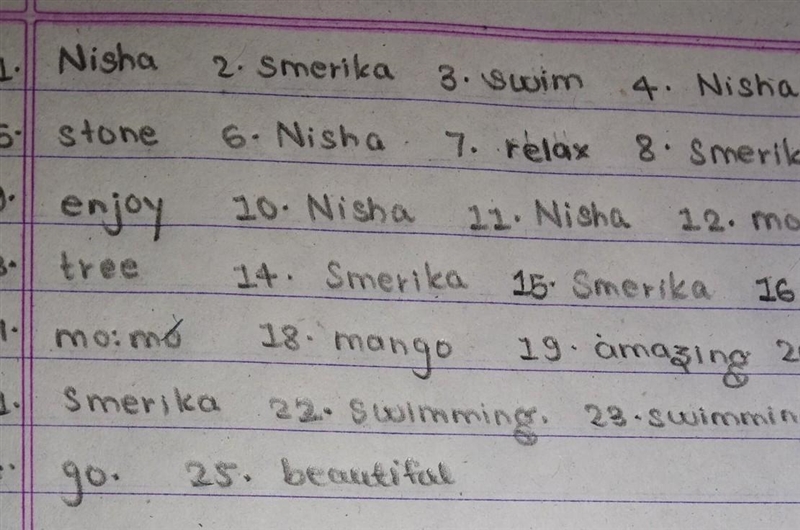 1. Nisha 2. Smerika 3. swim 4. Nisha
5. stone 6. Nisha 7. relax 8. Smerik
9. enjoy 10. Nisha 11. Nisha 12. mo
3. tree 14. Smerika 15. Smerika 16
mo:mo 18. mango 19. amazing 2
1. Smerika 22. swimming. 23. swimmin
go. 25. beautifal